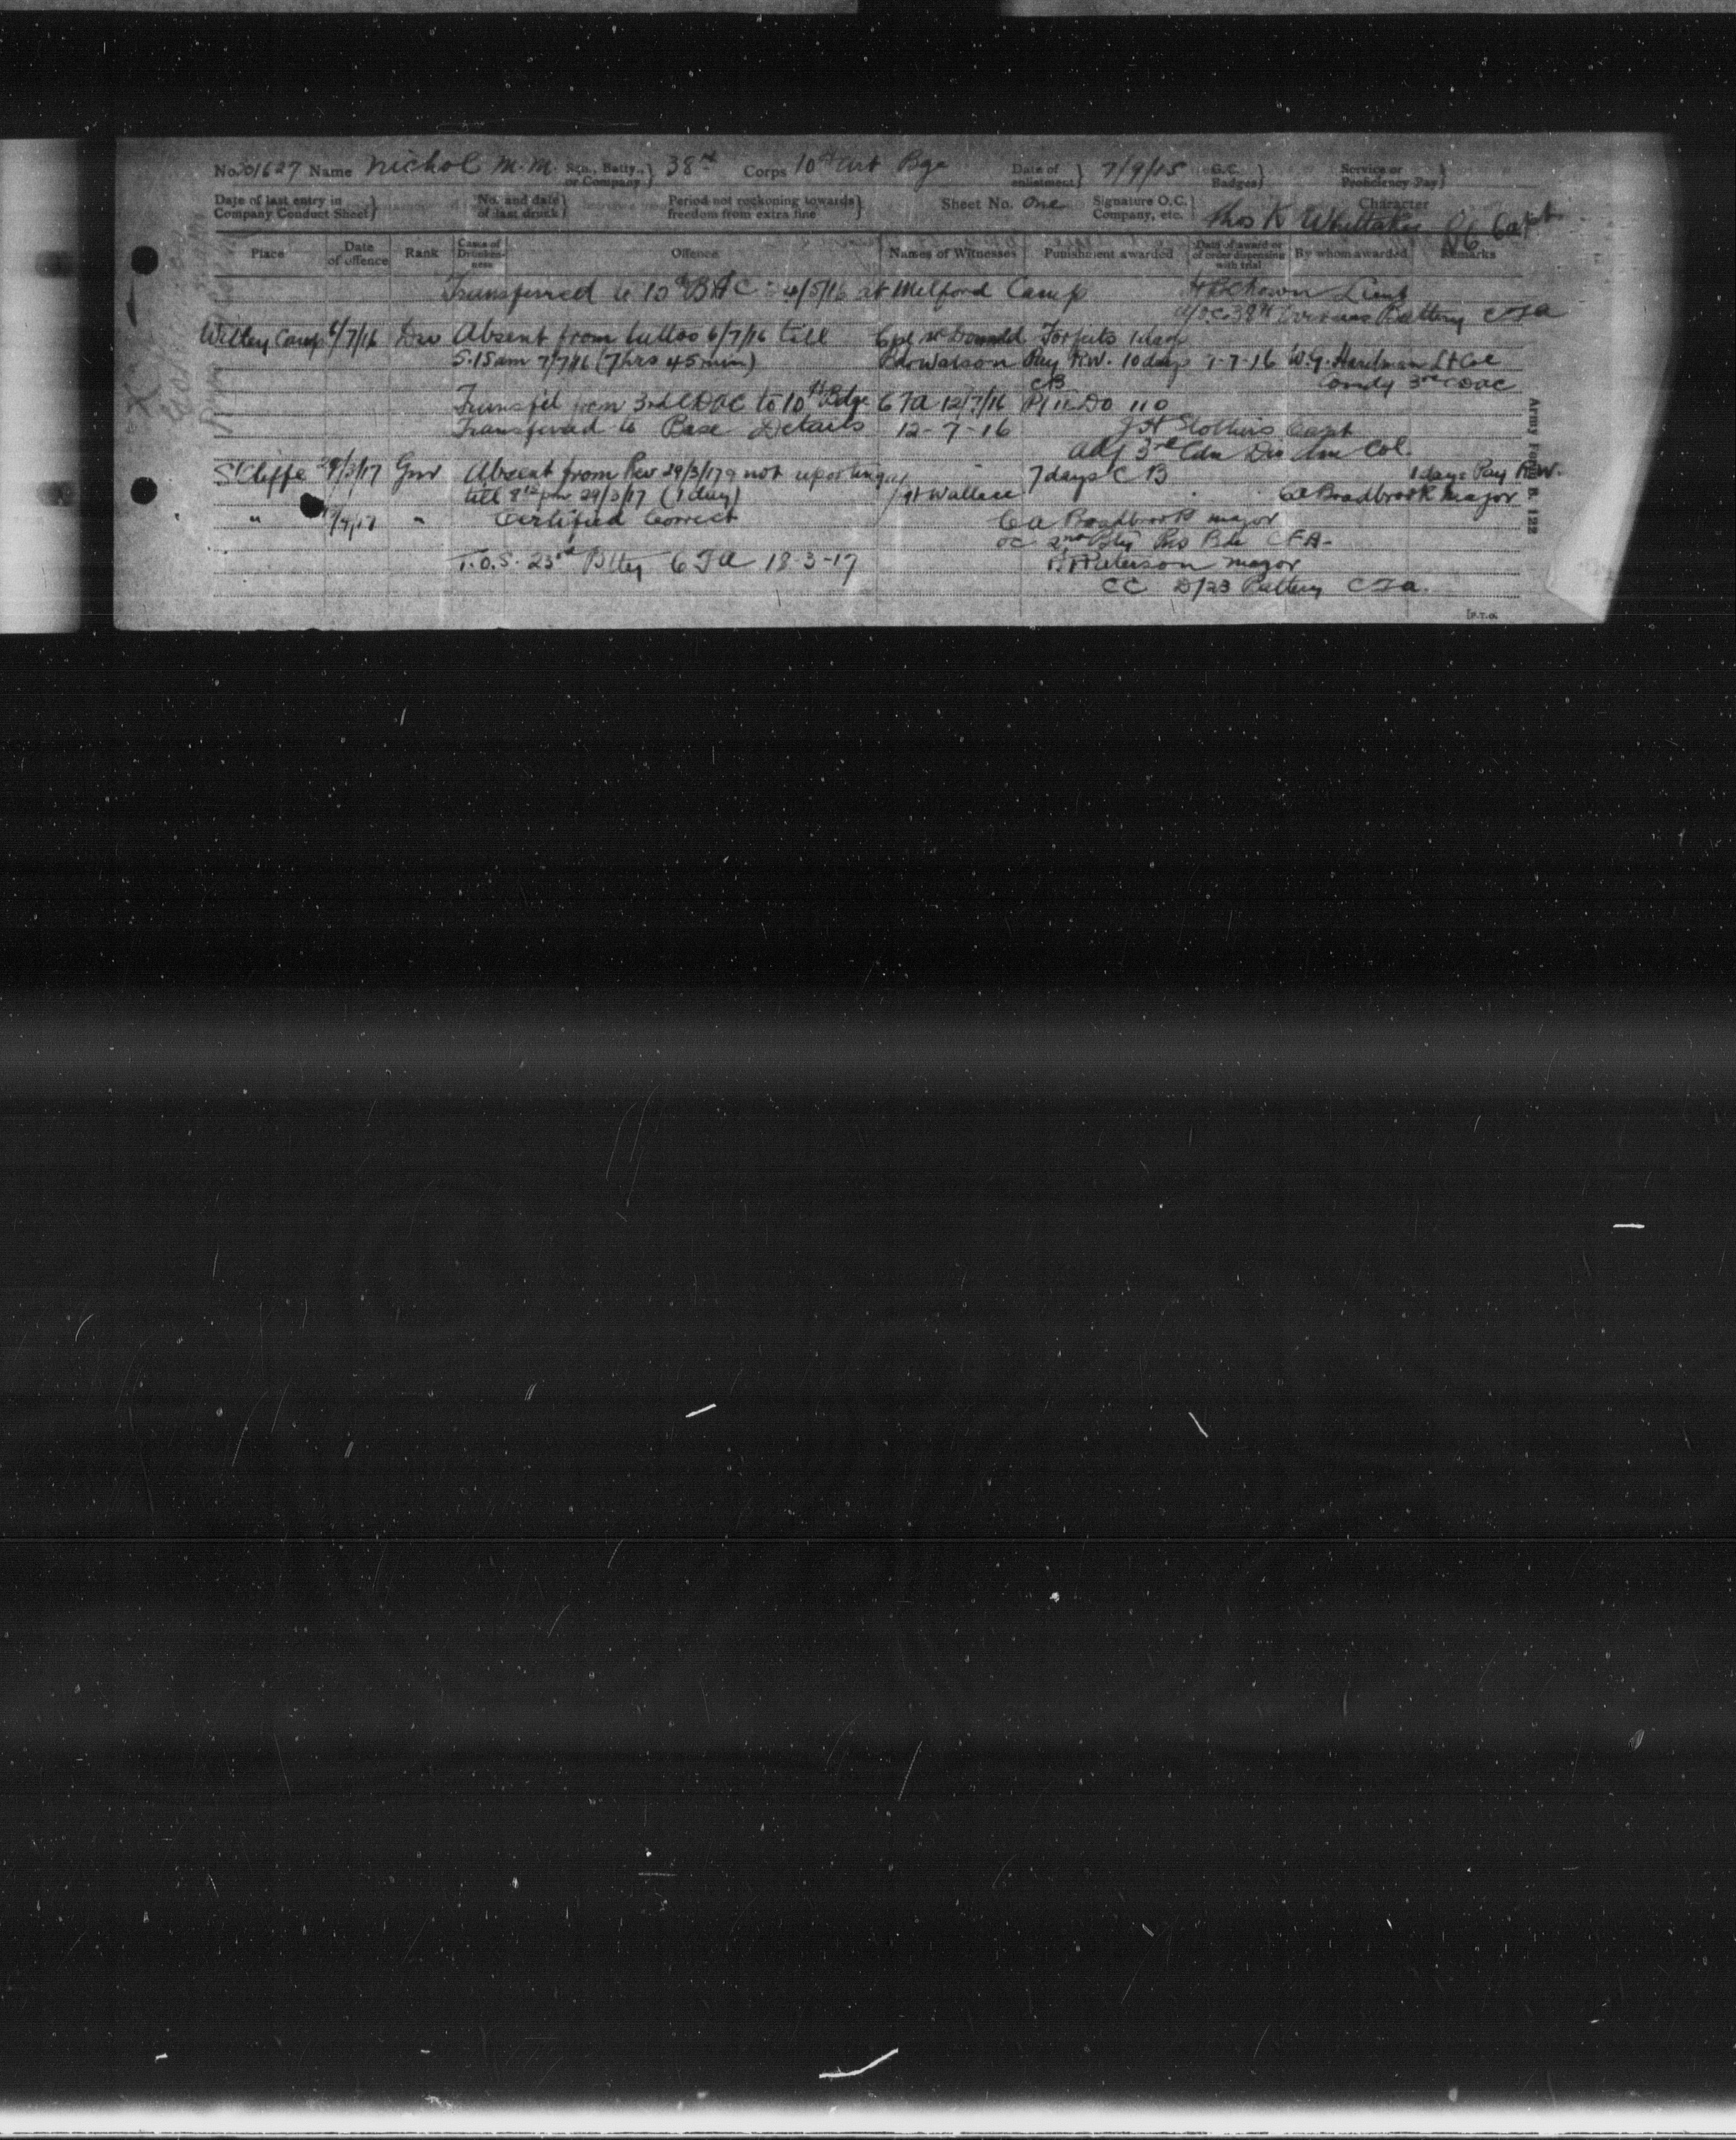 No. 301627 Name Nichol M.M. Sqn., Batty., or Company} 38th Corps 10th Art Bge Date of enlistment} 7/9/15 G.C. Badges} Service or Proficiency Pay}
Date of last entry in Company Conduct Sheet} No. and date of last drunk} Period not reckoning towards freedom from extra fine} Sheet No. One Signature O.C. Company, etc.} Thos K Whittaker Capt Character
Place Date of offence Rank Cases of Drunkenness Offence Names of Witnesses Punishment awarded Date of award or of order dispensing with trial By whom awarded Remarks
Transferred to 10th BAC 4/5/16 at Milford Camp Lieut
O.C. 38th Overseas Battery CFA
Witley Camp 6/7/16 Dvr Absent from tattoo 6/7/16 till Cpl McDonald Forfeits 1 day
5.15 am 7/7/16 (7 hrs 45 min) Bdr Watson Pay R.W. 10 days 7-7-16 W.G. Lt Col
CB Comdg 3rd CDAC
from 3rd CDAC to 10th Bdge CFA 12/7/16 Pt 11 DO 110
Transferred to Base Details 12-7-16 Capt
Adj 3rd Cdn Div Am Col.
S'Cliffe 29/3/17 Gnr Absent from Rev 29/3/17 & not reporting 7 days CB 1 days Pay R.W.
till 8 pm 29/3/17 (1 day) Wallace CA Broadbrook Major
" " Certified Correct CA Broadbrook Major
OC 2nd Bty Res Bde CFA-
T.O.S. 23rd Btty CFA 18-3-17 Paterson Major
D/23 Battery CFA.
Army Form B. 122
[P.T.O.